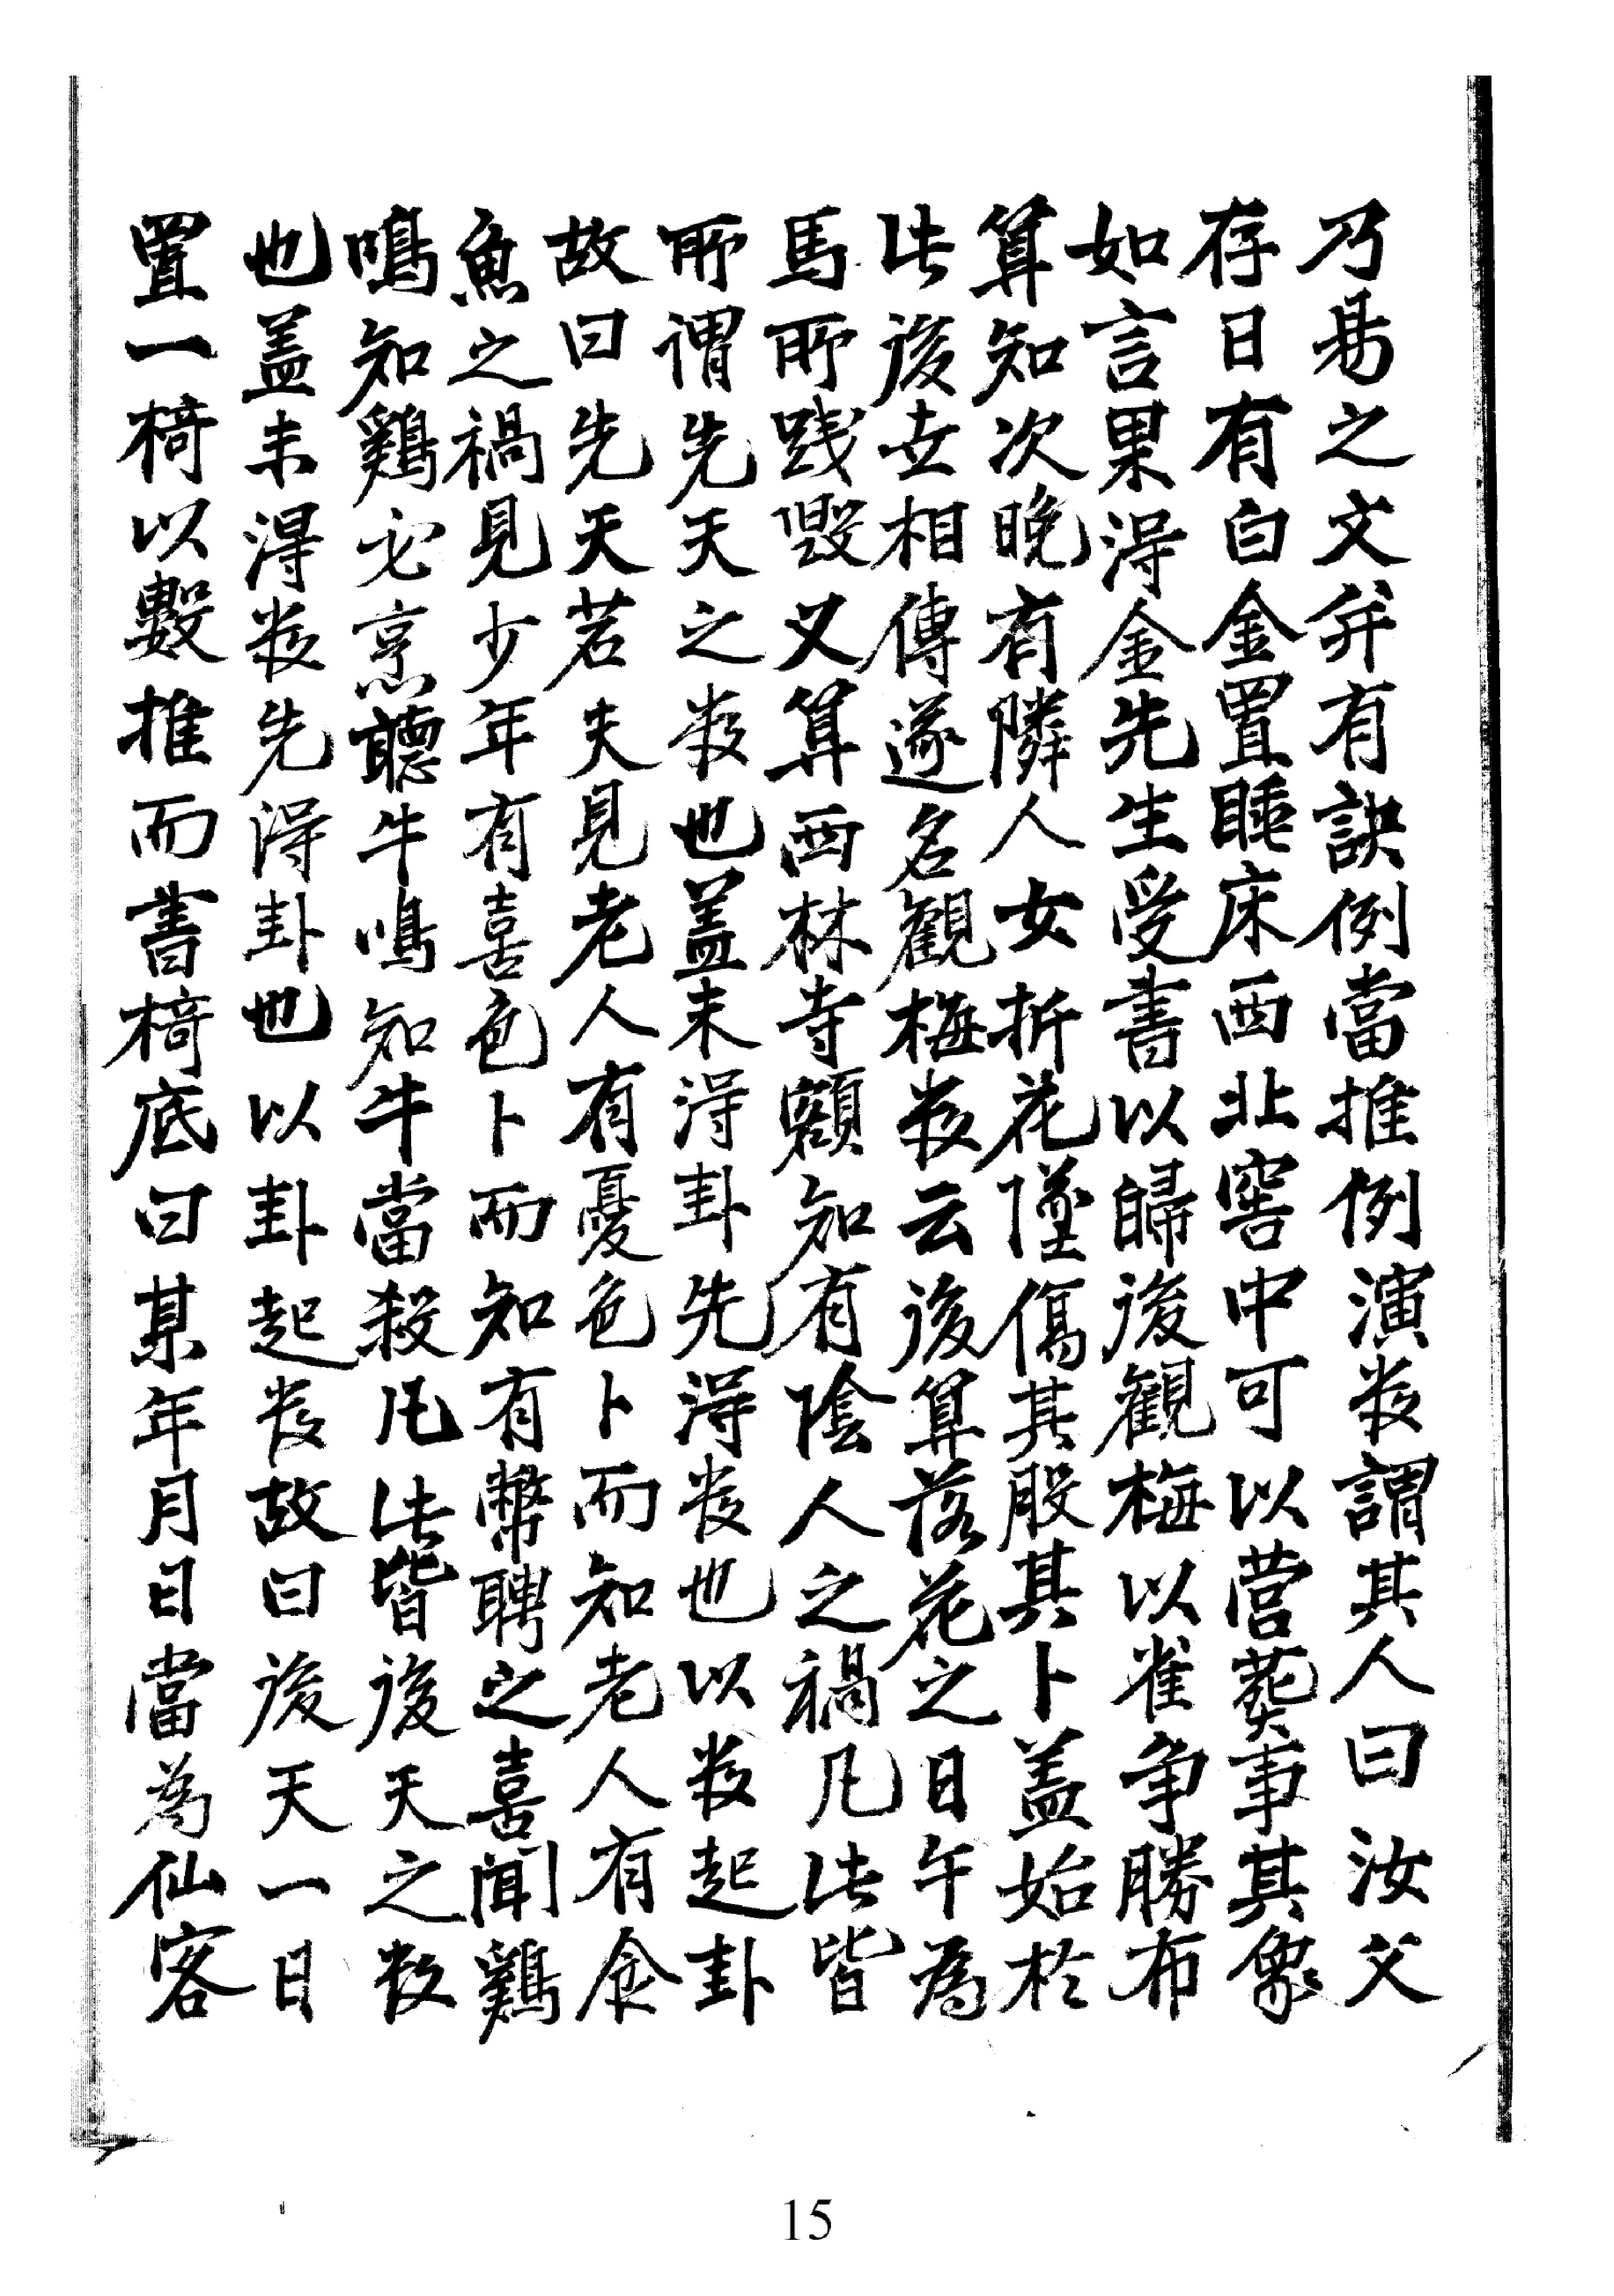 乃易之文并有訣例當推例演数謂其人曰汝父
存日有白金置睡床西北窖中可以营葬事其象
如言果淂金先生受書以歸後觀梅以雀争勝布
算知次晚有隣人女折花墜傷其股其卜盖始於
此後世相傳遂名觀梅数云後算落花之日午為
馬所踐毀又算西林寺額知有陰人之禍凡此皆
所謂先天之数也盖未淂卦先淂数也以数起卦
故曰先天若夫見老人有憂色卜而知老人有食
魚之禍見少年有喜色卜而知有幣聘之喜聞鷄
鳴知鷄必烹聽牛鳴知牛當殺凡此皆後天之数
也盖未淂数先淂卦也以卦起数故曰後天一日
置一椅以數推而書椅底曰某年月日當為仙客
15